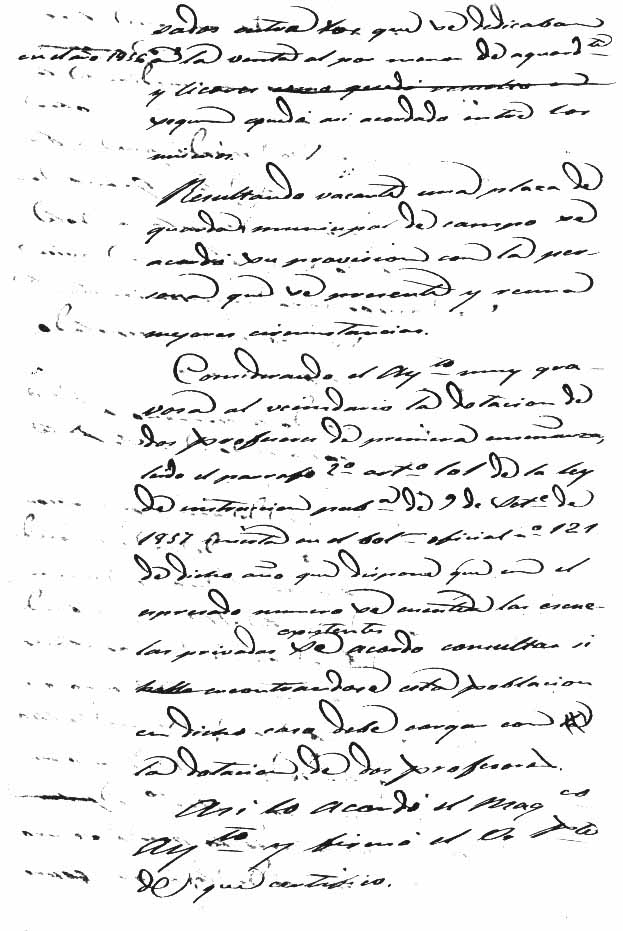 vados entre los que se dedicaban
en el año 1856 a la venta al por menor de aguard.te
y licores como quedó resuelto en
segun queda asi acordado entre los
mismos.
Resultando vacante una plaza de
guarda municipal de campo se
acordó su provision con la per-
sona que se presente y reuna
mejores circunstancias.
Considerando el Ay.to muy gra-
vosa al vecindario la dotacion de
dos profesores de primera enseñanza,
leido el parrafo 2º art.o 101 de la ley
de instruccion pub.ca de 9 de Set.e de
1857 inserta en el bol.n oficial nº 121
de dicho año que dispone que en el
espresado numero se cuenten las escue-
las privadas existentes se acordó consultar si
halla encontrandose esta poblacion
en dicho caso debe cargar con
la dotacion de dos profesores.
Asi lo acordó el Mag.co
Ay.to y firmó el Sr P.te
de que certifico.